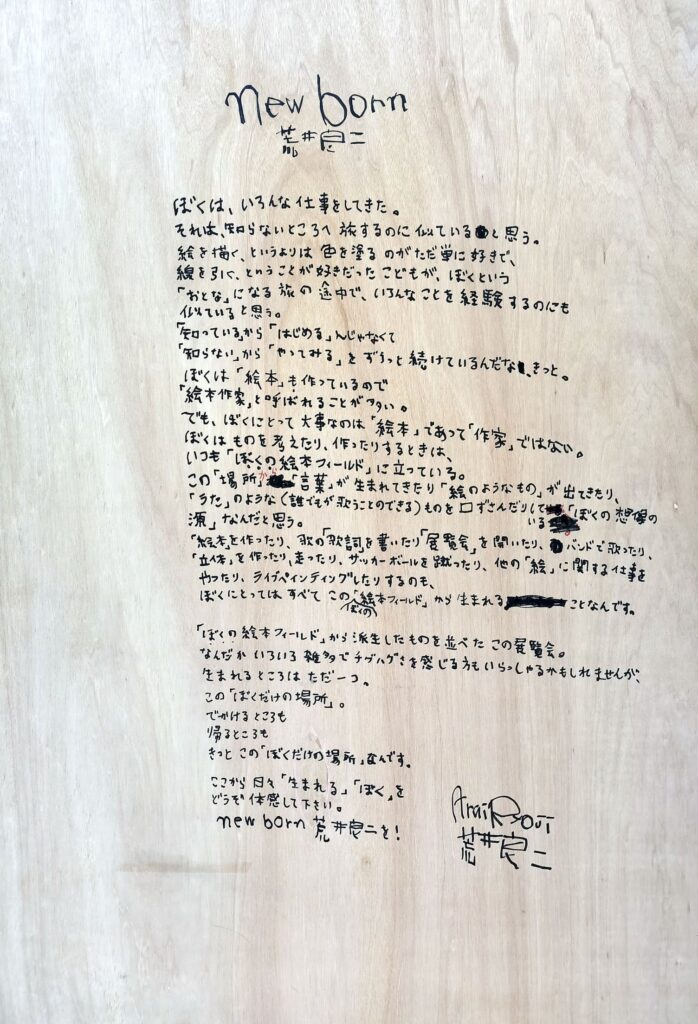 new born
荒井良二
ぼくは、いろんな仕事をしてきた。
それは、知らないところへ旅するのに似ていると思う。
絵を描く、というよりは色を塗るのがただ単に好きで、
線を引く、ということが好きだったこどもが、ぼくという
「おとな」になる旅の途中で、いろんなことを経験するのにも
似ていると思う。
「知っている」から「はじめる」んじゃなくて
「知らない」から「やってみる」をずうっと続けているんだな、きっと。
ぼくは「絵本」も作っているので
「絵本作家」と呼ばれることが多い。
でも、ぼくにとって大事なのは「絵本」であって「作家」ではない。
ぼくはものを考えたり、作ったりするときは、
いつも「ぼくの絵本フィールド」に立っている。
この「場所」から「言葉」が生まれてきたり「絵のようなもの」が出てきたり、
「うた」のような(誰でもが歌うことのできる)ものを口ずさんだりしている「ぼくの想像の
源」なんだと思う。
「絵本」を作ったり、歌の「歌詞」を書いたり「展覧会」を開いたり、バンドで歌ったり、
「立体」を作ったり、走ったり、サッカーボールを蹴ったり、他の「絵」に関する仕事を
やったり、ライブペインティングしたりするのも、
ぼくにとってはすべてこの「ぼくの絵本フィールド」から生まれることなんです。
「ぼくの絵本フィールド」から派生したものを並べたこの展覧会。
なんだかいろいろ雑多でチグハグさを感じる方もいらっしゃるかもしれませんが、
生まれるところはただ一つ。
この「ぼくだけの場所」。
でかけるところも
帰るところも
きっとこの「ぼくだけの場所」なんです。
ここから日々「生まれる」「ぼく」を
どうぞ体感して下さい。
new born 荒井良二を!
Arai Ryoji
荒井良二